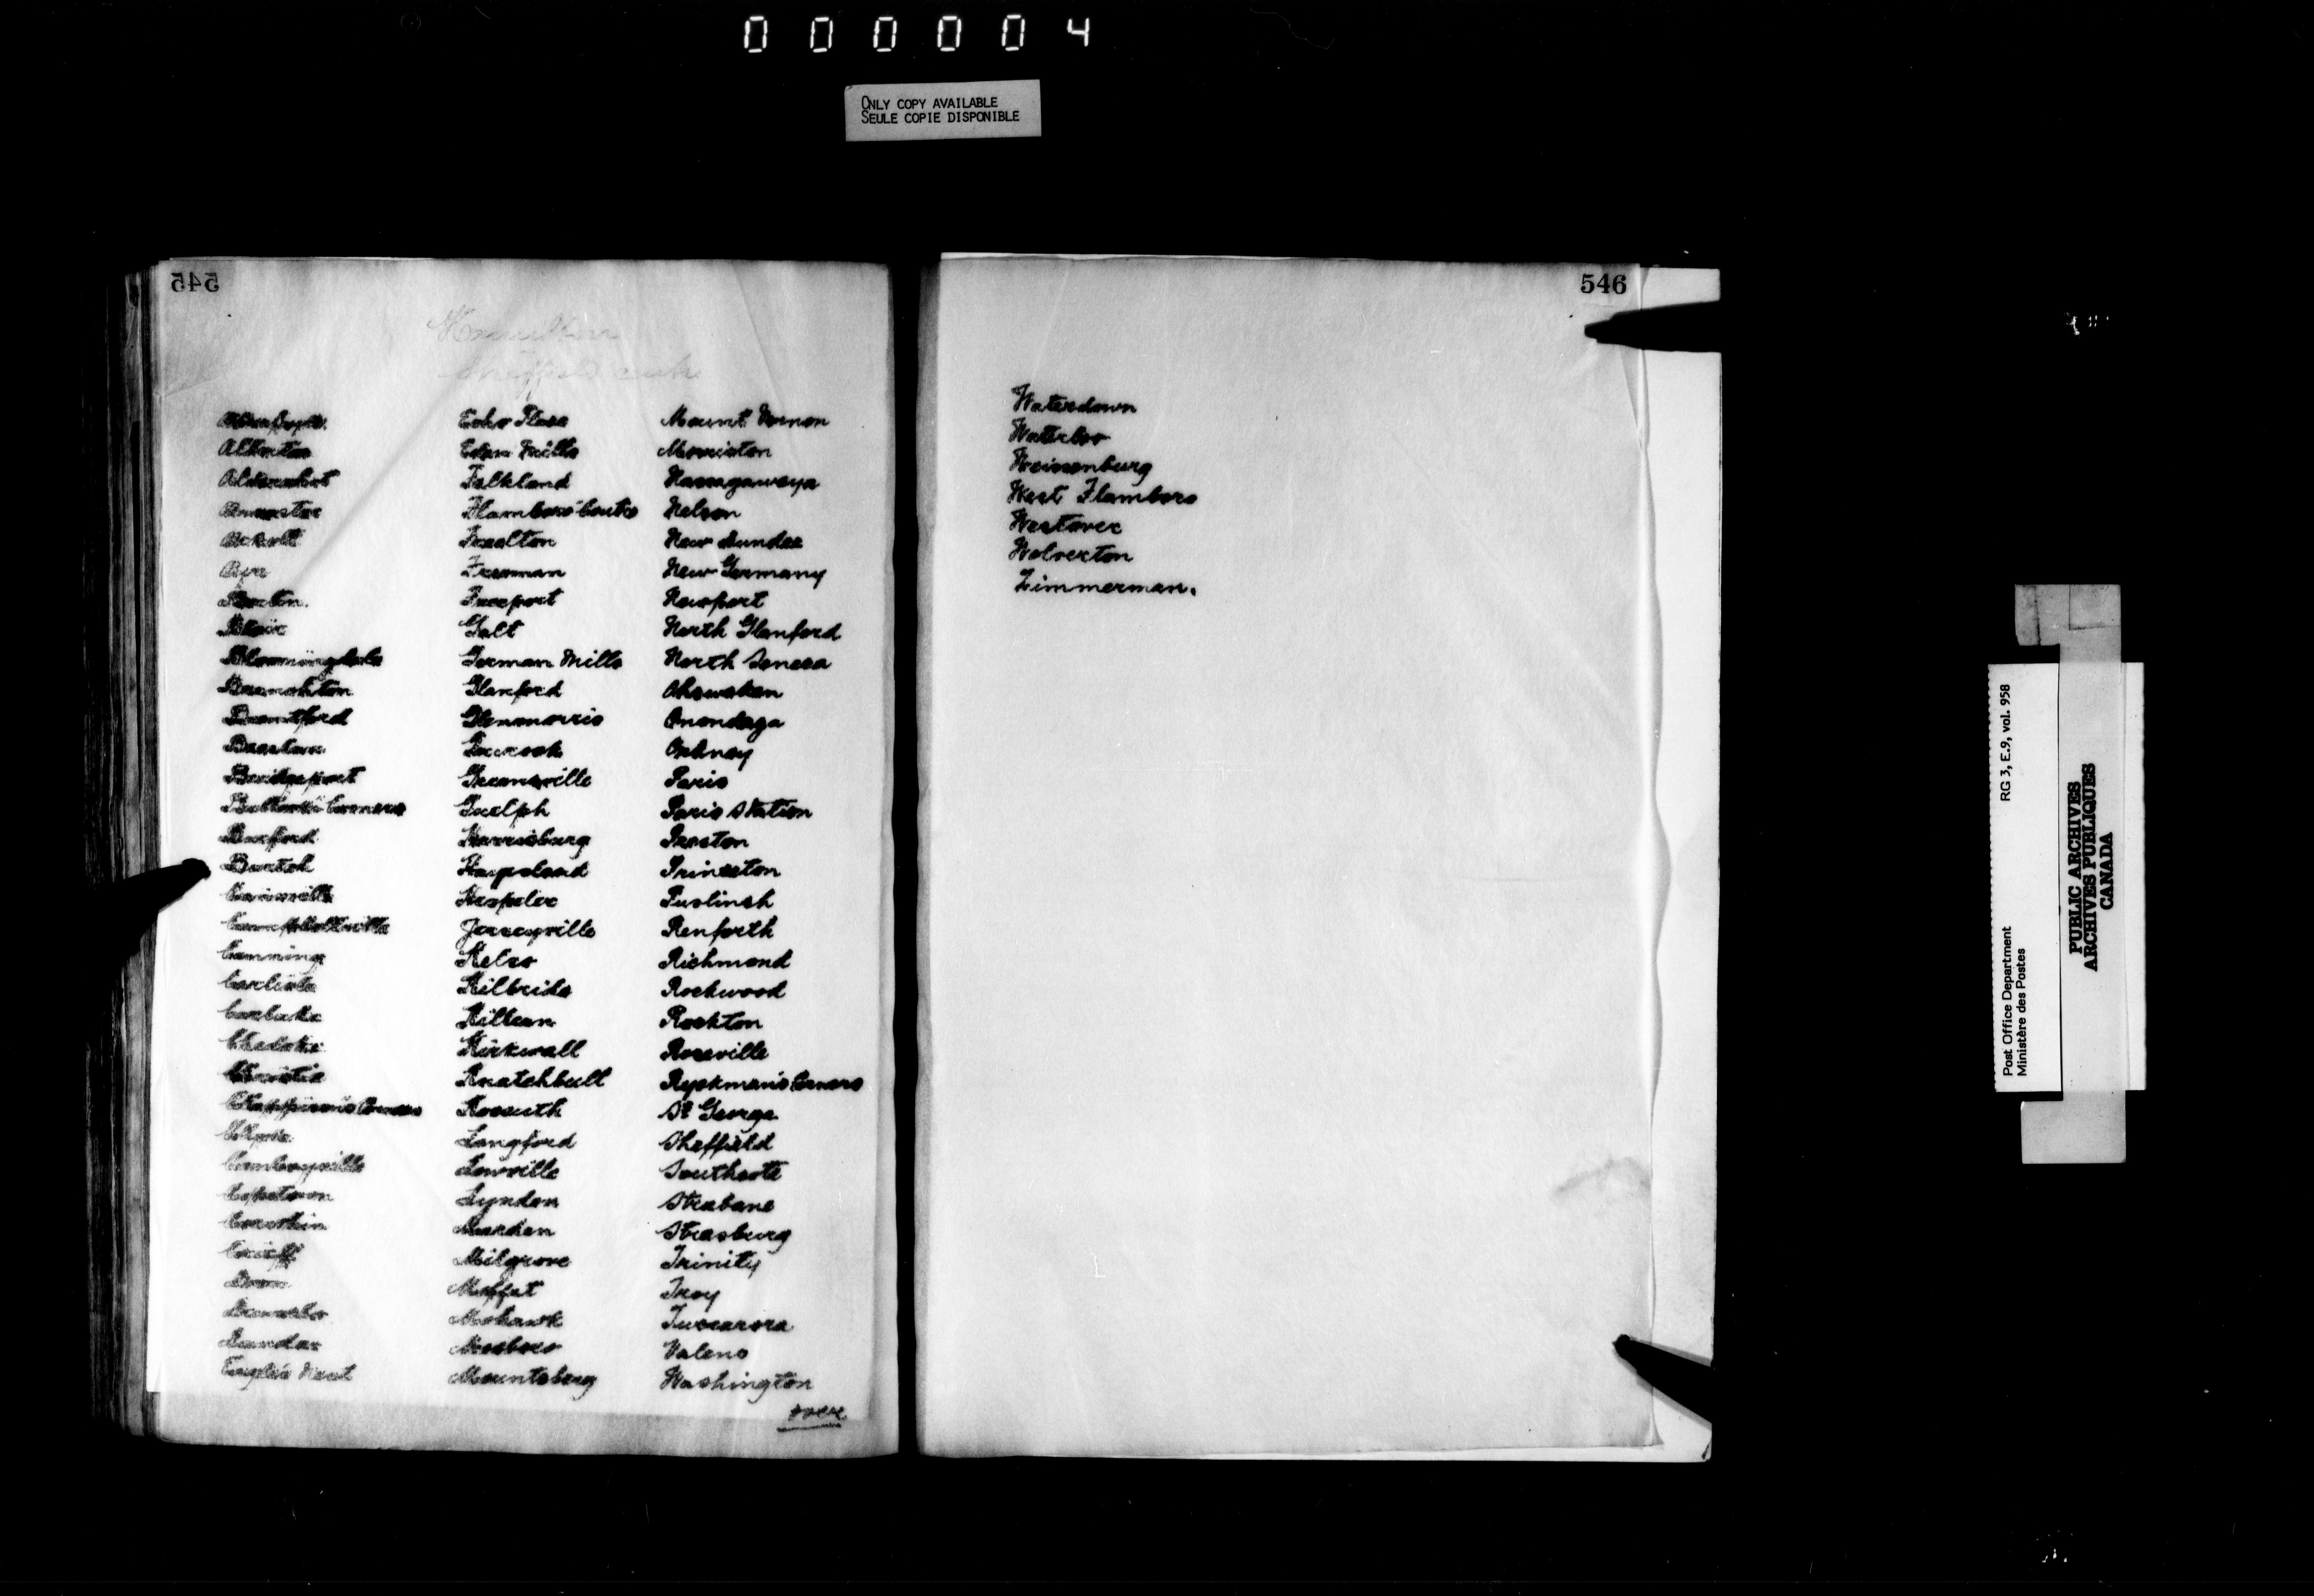 000004
ONLY COPY AVAILABLE
SEULE COPIE DISPONIBLE
545
Alberton
Aldershot
Ancaster
Ayr
Barton
Blair
Bloomingdale
Branchton
Brantford
Breslau
Bridgeport
Bullock's Corners
Burford
Burtch
Cainsville
Campbellville
Canning
Carlisle
Carluke
Chedoke
Christie
Clappison's Corners
Clyde
Conboyville
Copetown
Corwhin
Crieff
Doon
Drumbo
Dundas
Eagle's Nest
Echo Place
Eden Mills
Falkland
Flamboro' Centre
Freelton
Freeman
Freeport
Galt
German Mills
Glanford
Glenmorris
Gourock
Greensville
Guelph
Harrisburg
Haysland
Hespeler
Jerseyville
Kelso
Kilbride
Killean
Kirkwall
Knatchbull
Kossuth
Langford
Lowville
Lynden
Marden
Milgrove
Moffat
Mohawk
Mosboro
Mountsberg
Mount Vernon
Morriston
Nassagaweya
Nelson
New Dundee
New Germany
Newport
North Glanford
North Seneca
Ohsweken
Onondaga
Orkney
Paris
Paris Station
Preston
Princeton
Puslinch
Renforth
Richmond
Rockwood
Rockton
Roseville
Ryckman's Corners
St George
Sheffield
Southcote
Strabane
Strasburg
Trinity
Troy
Tuscarora
Valens
Washington
over
546
Waterdown
Waterloo
Weissenburg
West Flamboro
Westover
Wolverton
Zimmerman.
Post Office Department
Ministère des Postes
RG 3, E.9, vol. 958
PUBLIC ARCHIVES
ARCHIVES PUBLIQUES
CANADA